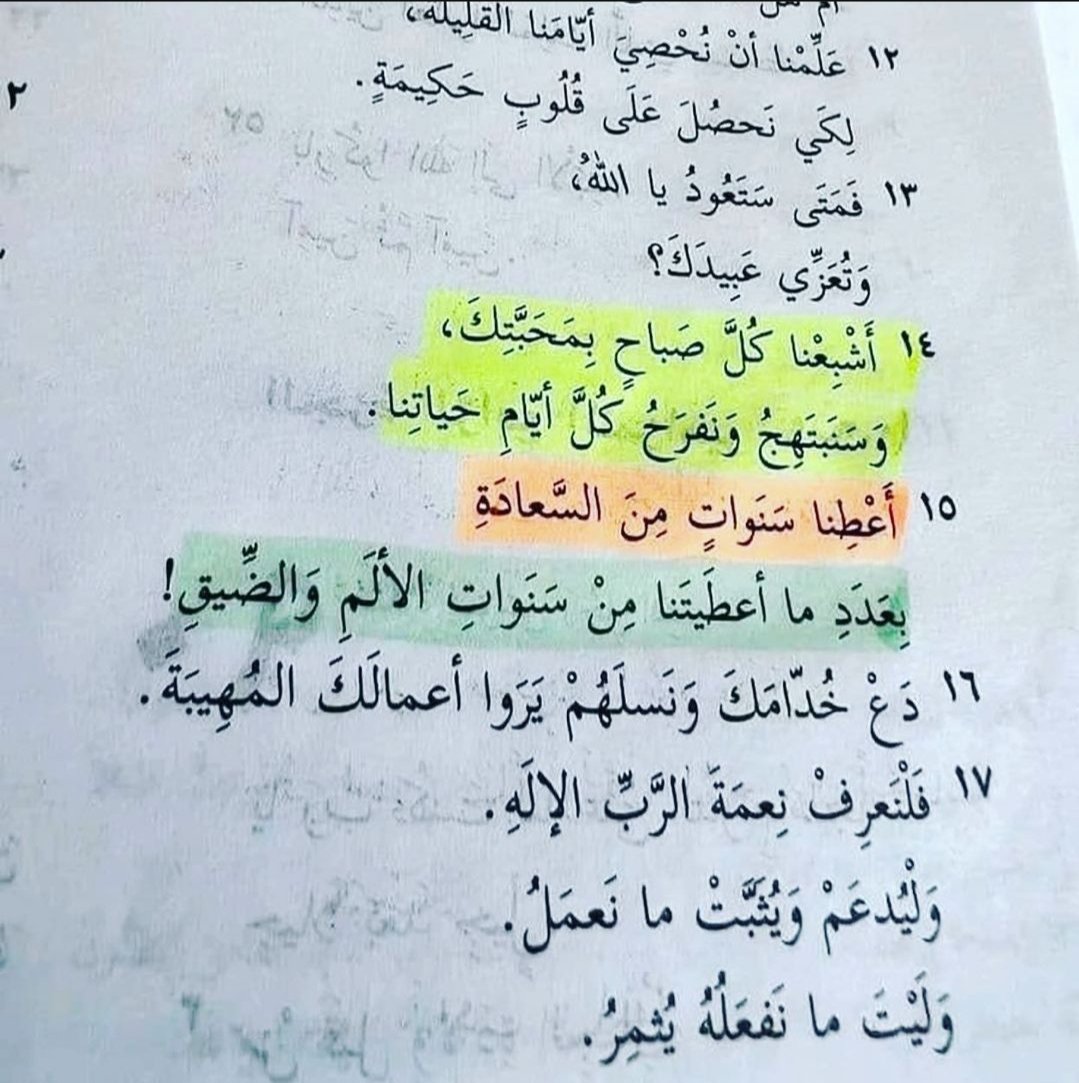 أم هل
١٢ عَلِّمْنا أنْ نُحْصِيَ أيّامَنا القَلِيلَةَ،
لِكَي نَحصُلَ عَلَى قُلُوبٍ حَكِيمَةٍ.
١٣ فَمَتَى سَتَعُودُ يا اللهُ،
وَتُعَزِّي عَبِيدَكَ؟
١٤ أَشْبِعْنا كُلَّ صَباحٍ بِمَحَبَّتِكَ،
وَسَنَبتَهِجُ وَنَفرَحُ كُلَّ أيّامِ حَياتِنا.
١٥ أَعْطِنا سَنَواتٍ مِنَ السَّعادَةِ
بِعَدَدِ ما أعطَيتَنا مِنْ سَنَواتِ الألَمِ وَالضِّيقِ!
١٦ دَعْ خُدّامَكَ وَنَسلَهُمْ يَرَوا أعمالَكَ المُهِيبَةَ.
١٧ فَلْنَعرِفْ نِعمَةَ الرَّبِّ الإلَهِ.
وَلْيُدعَمْ وَيُثَبَّتْ ما نَعمَلُ.
وَلَيْتَ ما نَفعَلُهُ يُثمِرُ.
٢